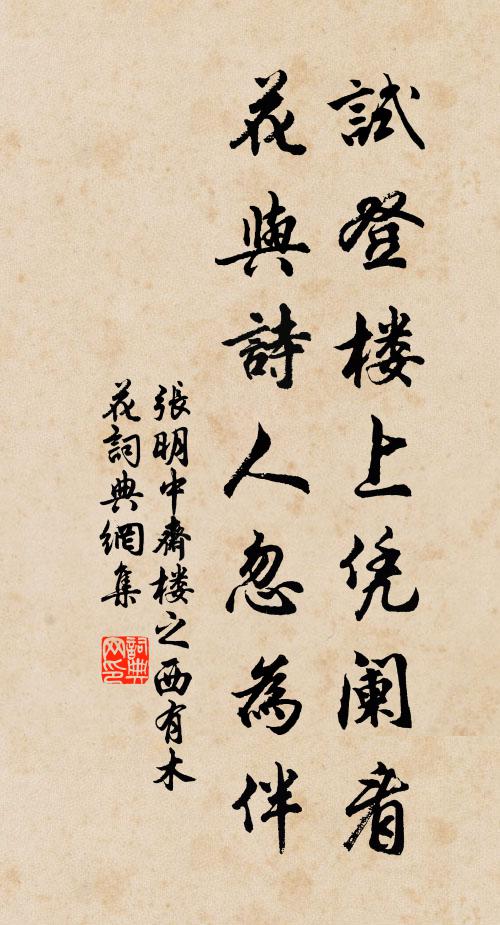 試登楼上凭阑看
花與詩人忽為伴
張明中齋楼之西有木
花詞典網集
詞典
网印